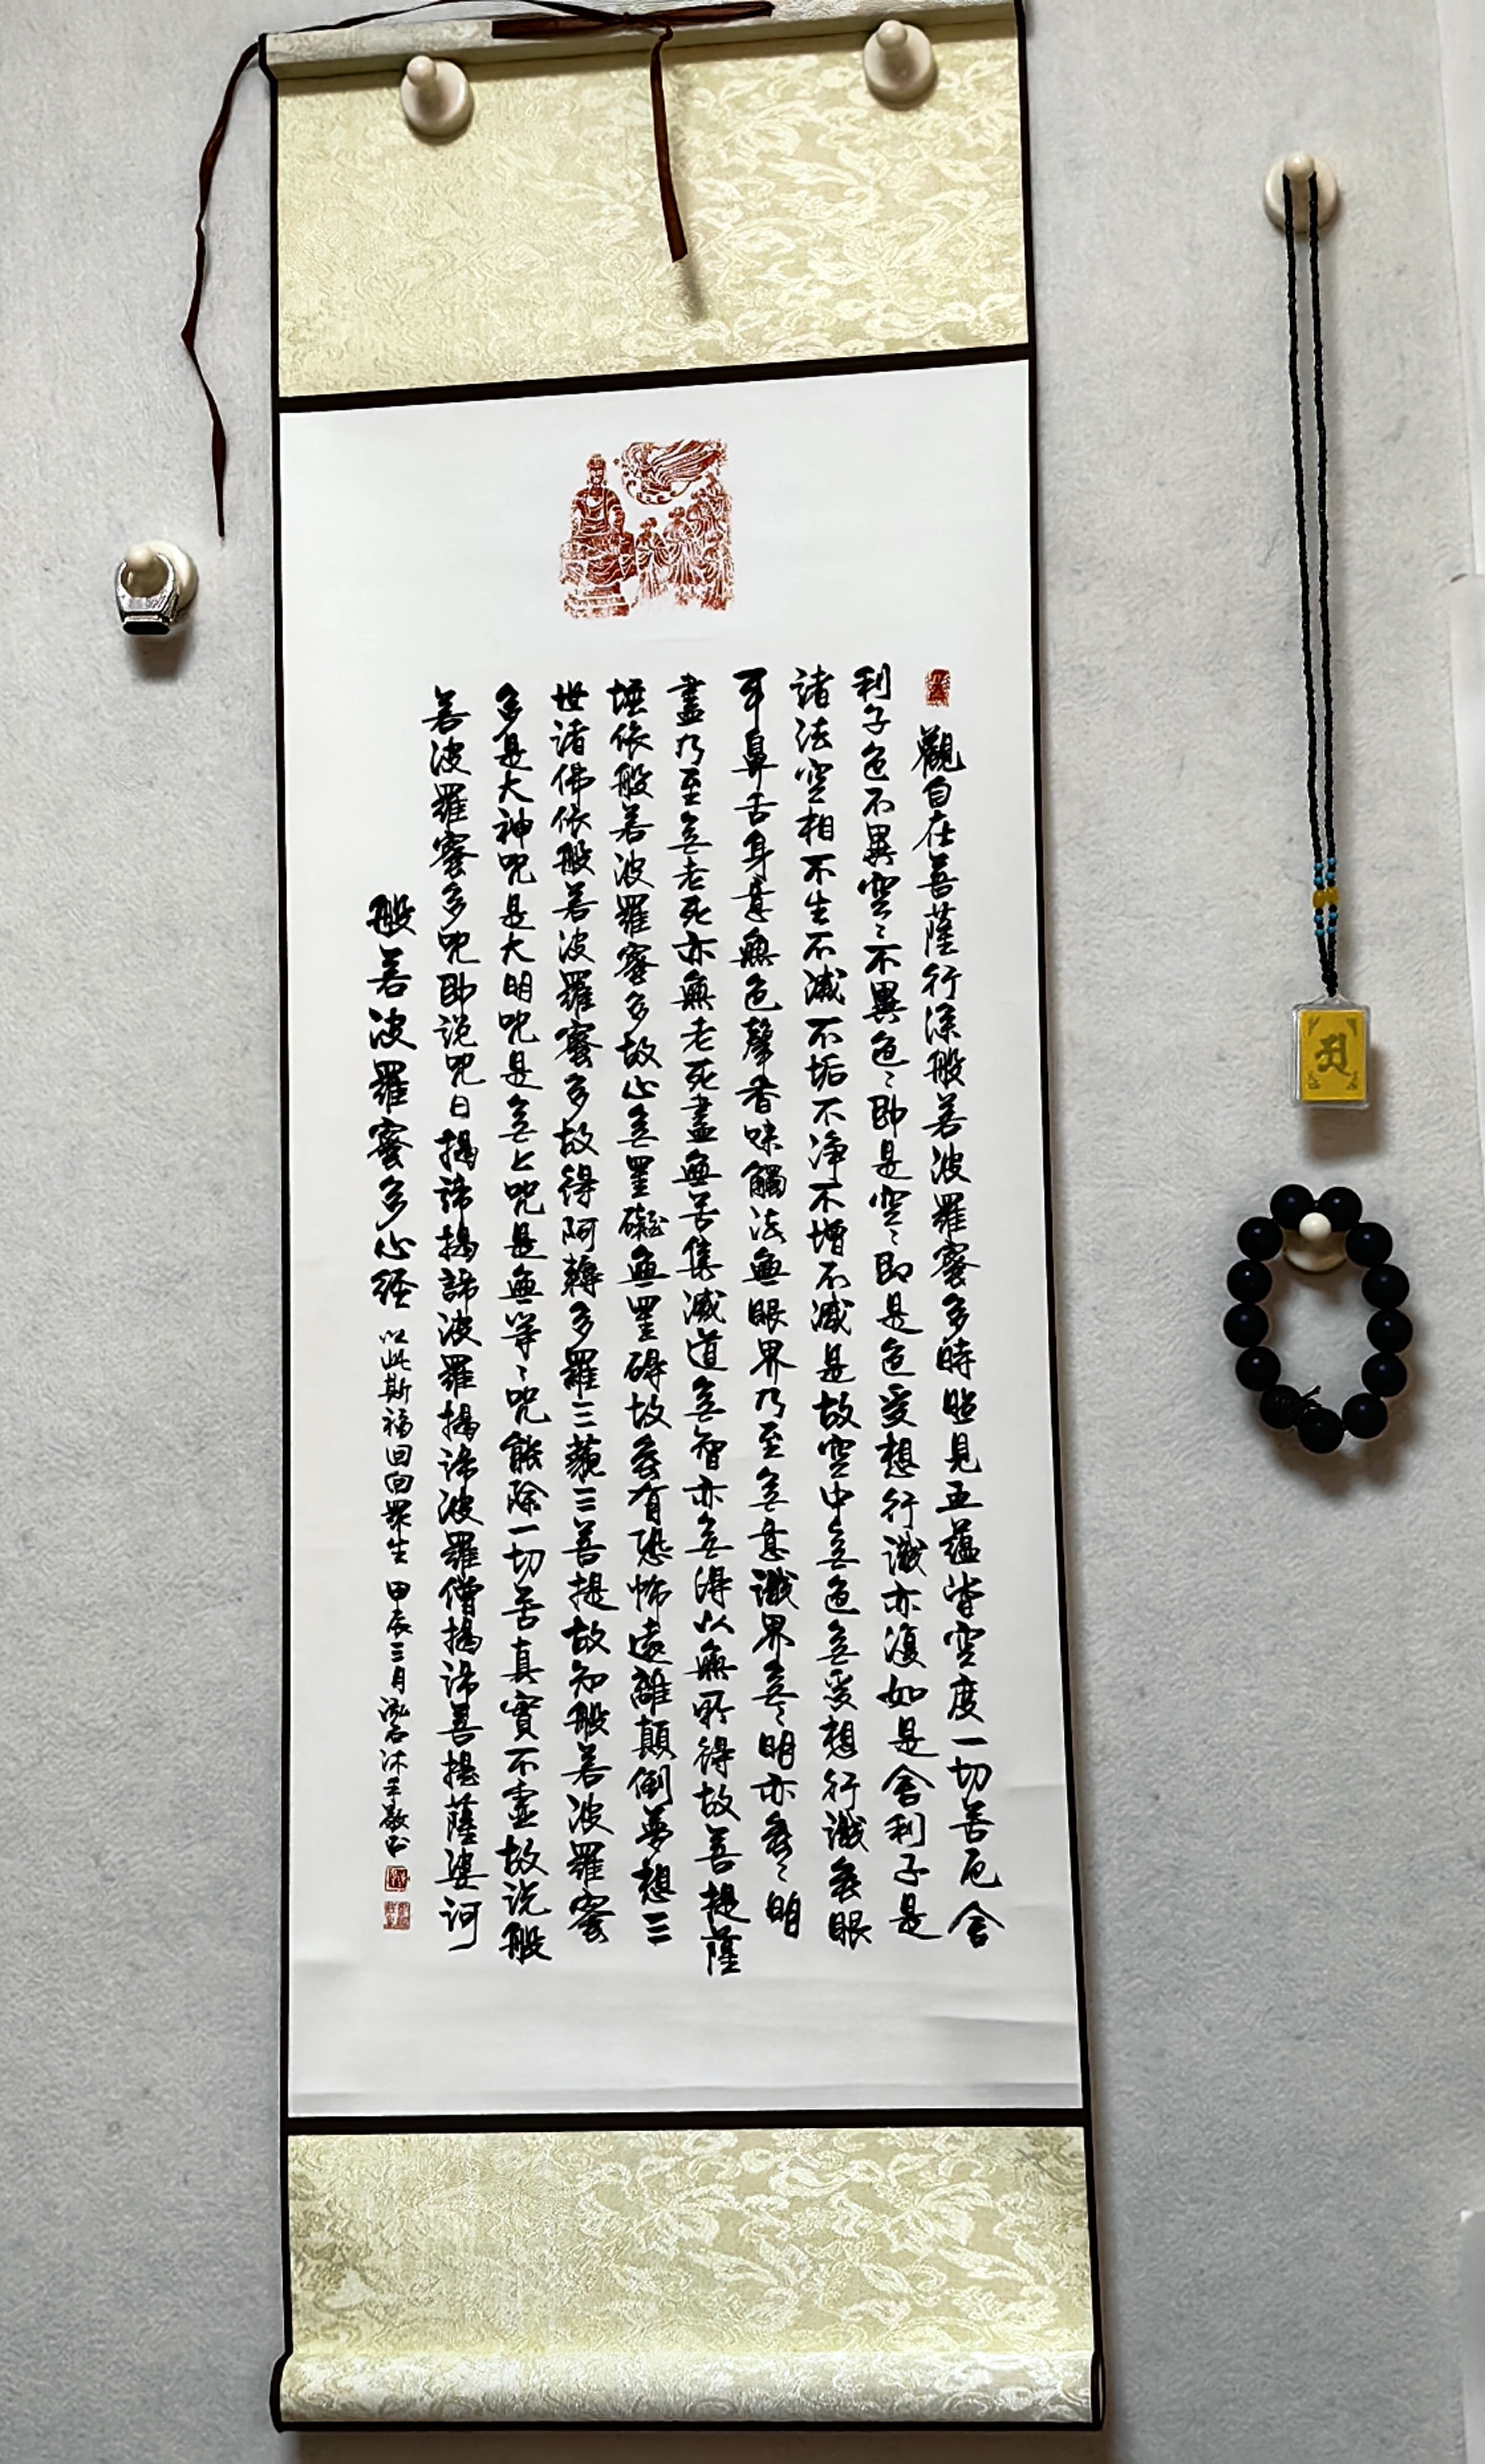 觀自在菩薩行深般若波羅蜜多時照見五蘊皆空度一切苦厄舍
利子色不異空々不異色々即是空々即是色受想行識亦復如是舍利子是
諸法空相不生不滅不垢不淨不增不減是故空中無色無受想行識無眼
耳鼻舌身意無色聲香味觸法無眼界乃至無意識界無々明亦無々明
盡乃至無老死亦無老死盡無苦集滅道無智亦無得以無所得故菩提薩
埵依般若波羅蜜多故心無罣礙無罣碍故無有恐怖遠離顛倒夢想三
世諸佛依般若波羅蜜多故得阿耨多羅三藐三菩提故知般若波羅蜜
多是大神咒是大明咒是無上咒是無等々咒能除一切苦真實不虛故说般
若波羅蜜多咒即説咒曰揭諦揭諦波羅揭諦波羅僧揭諦菩提薩婆訶
般若波羅蜜多心經
以此斯福回向眾生 甲辰三月